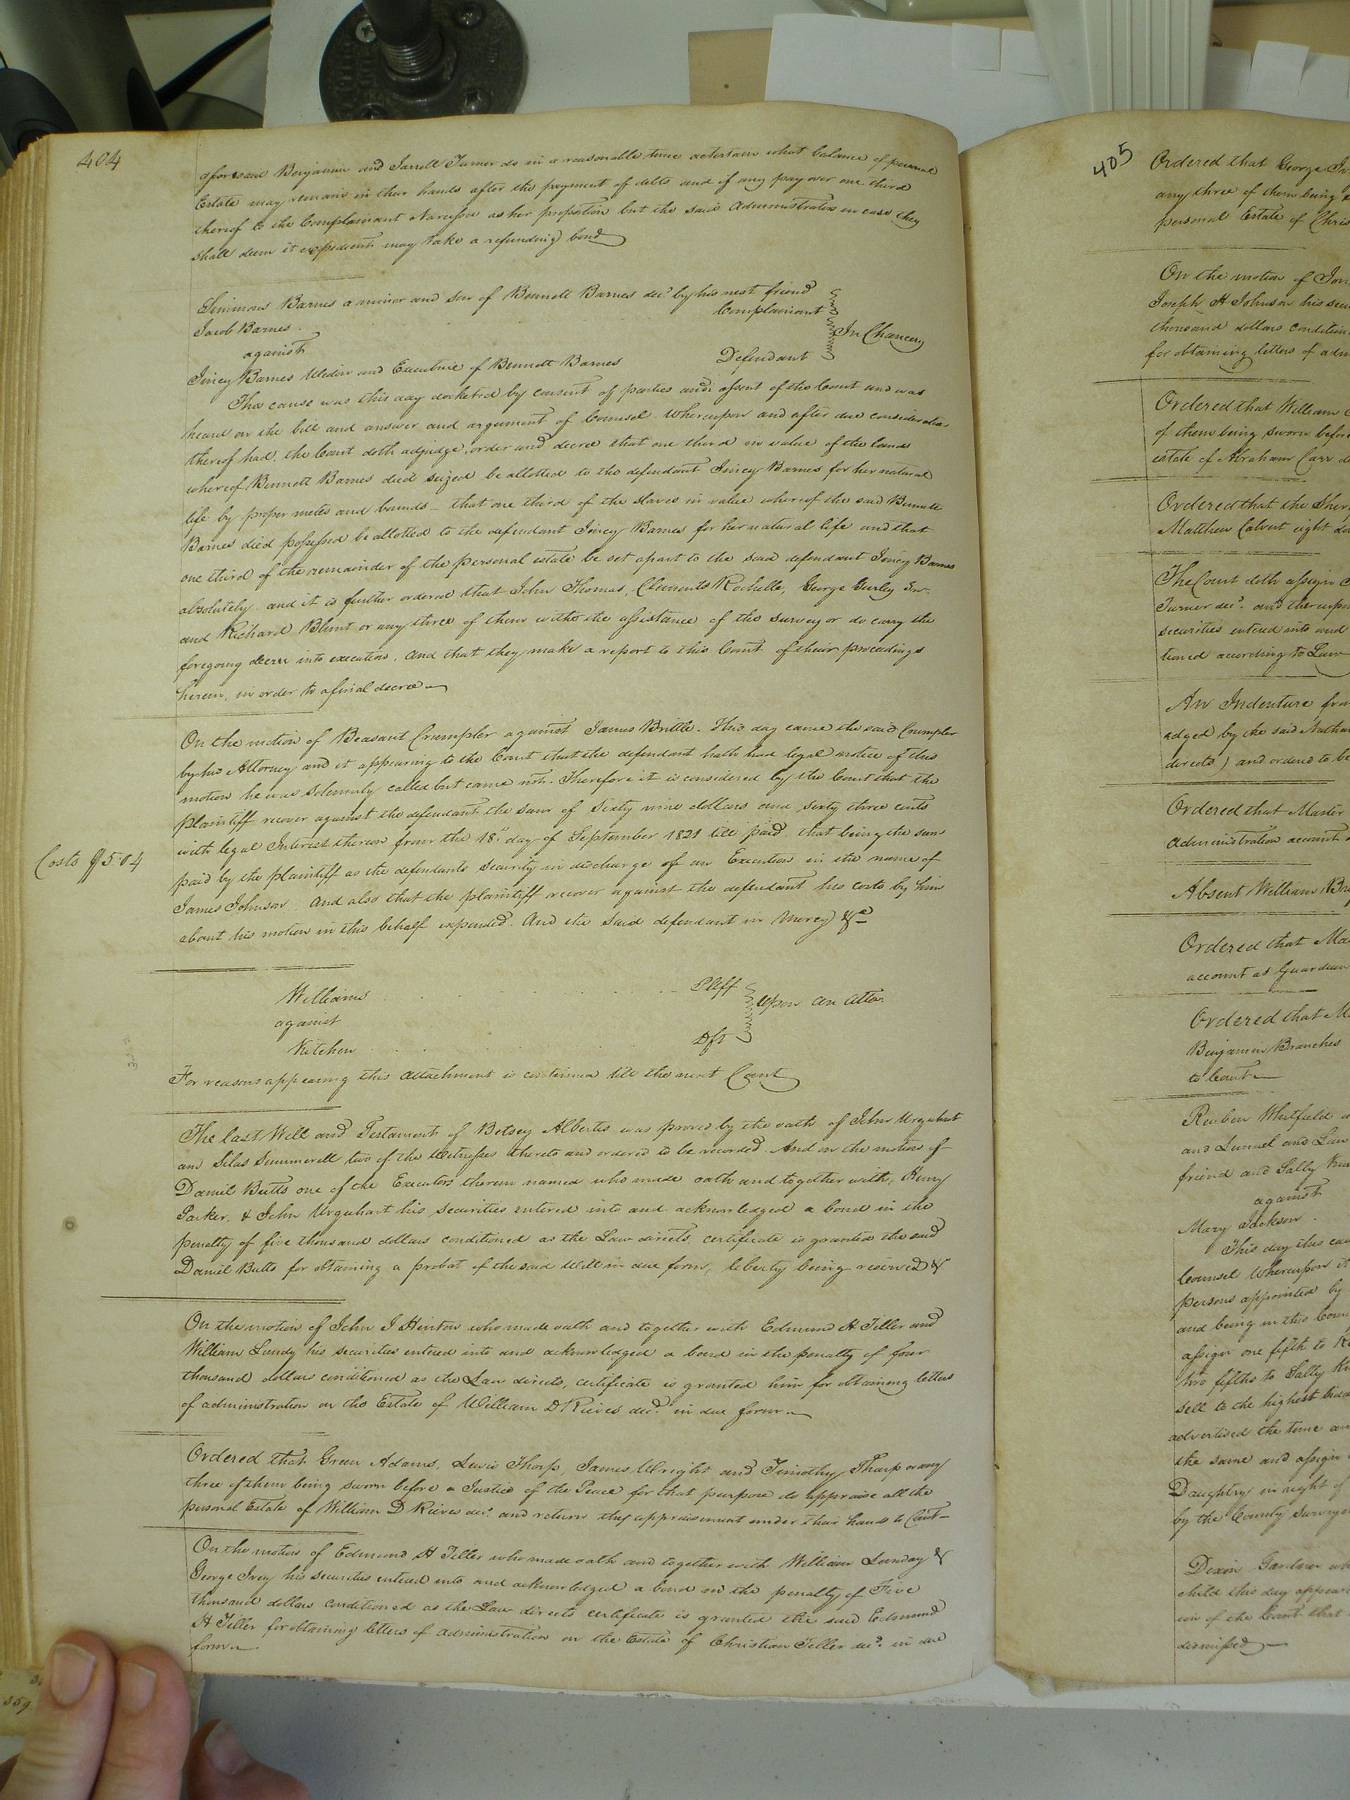 404
aforesaid Benjamin and Jarrell Turner do in a reasonable time ascertain what balance of personal
Estate may remain in their hands after the payment of debts and if any pay over one third
thereof to the Complainant Narcissa as her proportion but the said Administrators in case they
shall deem it expedient may take a refunding bond
Simmons Barnes a minor and son of Bennett Barnes decd. by his next friend
Jacob Barnes. Complainant
against In Chancery
Jincy Barnes Widow and Executrix of Bennett Barnes Defendant
This cause was this day docketed by consent of parties and assent of the Court and was
heard on the bill and answer and argument of Counsel. Whereupon and after due consideration
thereof had, the Court doth adjudge, order and decree that one third in value of the lands
whereof Bennett Barnes died seized be allotted to the defendant Jincy Barnes for her natural
life by proper metes and bounds - that one third of the slaves in value whereof the said Bennett
Barnes died possessed be allotted to the defendant Jincy Barnes for her natural life and that
one third of the remainder of the personal estate be set apart to the said defendant Jincy Barnes
absolutely and it is further ordered that John Thomas, Clements Rochelle, George Gurley Jnr.
and Richard Blunt or any three of them with the assistance of the surveyor do carry the
foregoing decree into execution, and that they make a report to this Court of their proceedings
herein, in order to a final decree
On the motion of Beasant Crumpler against James Brittle. This day came the said Crumpler
by his Attorney and it appearing to the Court that the defendant hath had legal notice of this
motion he was solemnly called but came not. Therefore it is considered by the Court that the
plaintiff recover against the defendant the sum of Sixty nine dollars and sixty three cents
with legal Interest thereon from the 18th day of September 1821 till paid, that being the sum
Costs $5.04
paid by the plaintiff as the defendants security in discharge of an Execution in the name of
James Johnson. And also that the plaintiff recover against the defendant his costs by him
about his motion in this behalf expended. And the said defendant in Mercy &c
Williams Pltff
against Upon an Atta.
Kitchen Dft
For reasons appearing this Attachment is continued till the next Court
The last Will and Testament of Betsey Albertis was proved by the oath of John Urquhart
and Silas Summerell two of the Witnesses thereto and ordered to be recorded. And on the motion of
Daniel Butts one of the Executors therein named who made oath and together with, Henry
Parker, & John Urquhart his securities entered into and acknowledged a bond in the
penalty of five thousand dollars conditioned as the Law directs, certificate is granted the said
Daniel Butts for obtaining a probat of the said Will in due form, liberty being reserved &
On the motion of John J Hinton who made oath and together with Edmund H Tiller and
William Lundy his securities entered into and acknowledged a bond in the penalty of four
thousand dollars conditioned as the Law directs, certificate is granted him for obtaining letters
of administration on the Estate of William D Rieves decd. in due form
Ordered that Green Adams, Lewis Thorp, James Wright and Timothy Tharp or any
three of them being sworn before a Justice of the Peace for that purpose do appraise all the
personal Estate of William D Rieves decd. and return the appraisement under their hands to Court
On the motion of Edmund H Tiller who made oath and together with William Lunday &
George Ivey his securities entered into and acknowledged a bond in the penalty of Five
thousand dollars conditioned as the Law directs certificate is granted the said Edmund
H Tiller for obtaining letters of administration on the Estate of Christian Tiller decd. in due
form
405
Ordered that George
any three of them being
personal Estate of
On the motion of
Joseph H Johnson his
thousand dollars
for obtaining letters of
Ordered that William
of them being sworn before
estate of Abraham Carr
Ordered that the
Matthew Calvert eight
The Court doth assign
Turner decd. and
securities entered into and
tioned according to Law
An Indenture from
edged by the said
directs) and ordered to be
Ordered that
Administration account
Absent William
Ordered that
account as Guardian
Ordered that
Benjamin Branches
to Court
Reuben Whitfield
and Lemuel and
friend and Sally
against
Mary Jackson.
This day this
Counsel Whereupon
persons appointed by
and being in this
assign one fifth to
two fifths to Sally
sell to the highest
advertised the time and
the same and assign
Daughtry in right of
by the County Surveyor
Dixon Gardner
child this day
ion of the Court that
dismissed
359